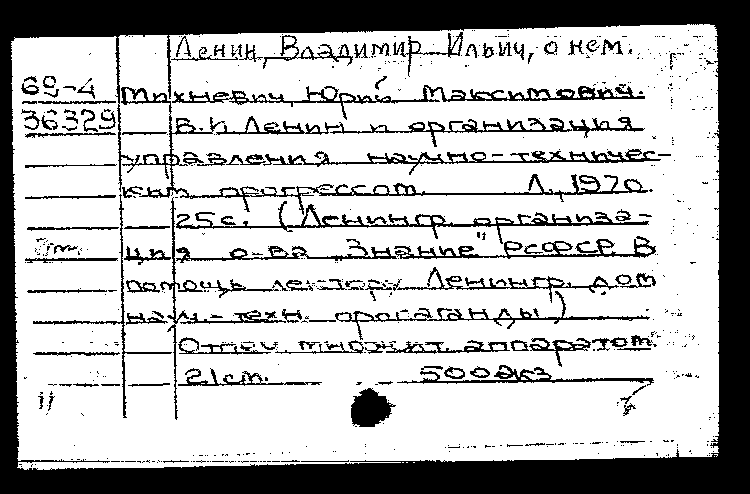 Ленин, Владимир Ильич, о нем.
69-4 Михневич, Юрий Максимович.
36329 В.И. Ленин и организация
управления научно-техничес-
ким прогрессом. Л., 1970.
25с. (Ленингр. организа-
ция о-ва „Знание" РСФСР. В
помощь лектору Ленингр. дом
науч.-техн. пропаганды)
Отпеч. множит. аппаратом.
21см. 500экз